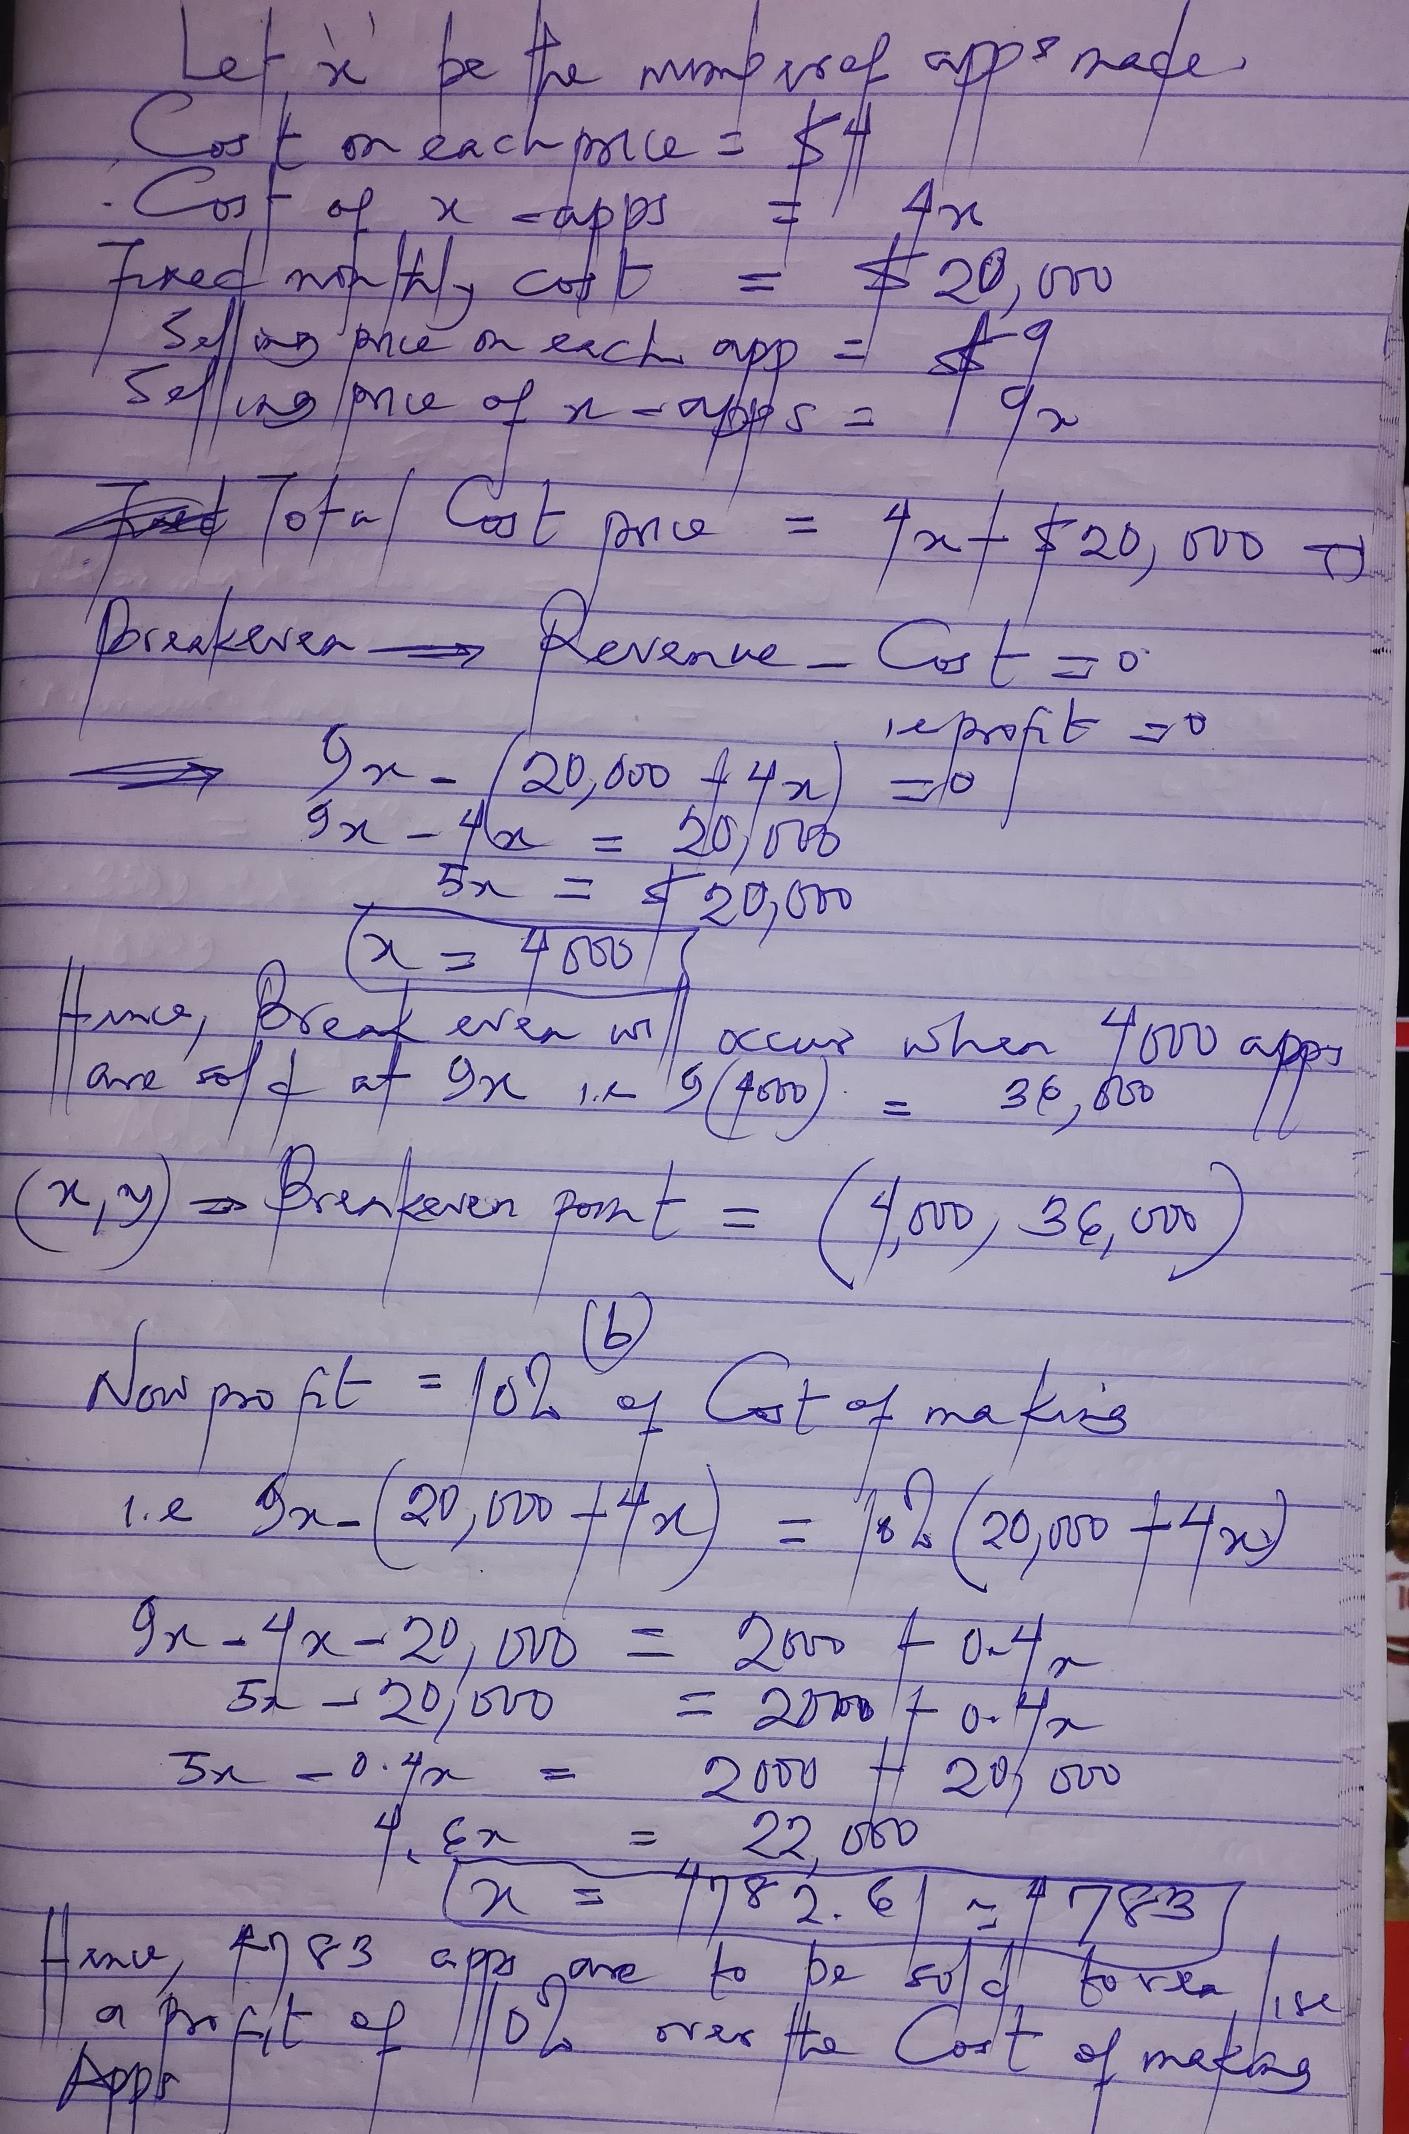 Let 'x' be the number of apps made
Cost on each price = $4
Cost of x - apps = 4x
Fixed monthly cost = $20,000
Selling price on each app = $9
Selling price of x - apps = 9x
Total Cost price = 4x + $20,000
Breakeven ⟹ Revenue - Cost = 0
i.e profit = 0
⟹ 9x - (20,000 + 4x) = 0
9x - 4x = 20,000
5x = $20,000
x = 4000
Hence, Break even will occur when 4000 apps
are sold at 9x i.e 9(4000) = 36,000
(x, y) ⇒ Breakeven point = (4,000, 36,000)
(b)
Now profit = 10% of Cost of making
i.e 9x - (20,000 + 4x) = 10% (20,000 + 4x)
9x - 4x - 20,000 = 2000 + 0.4x
5x - 20,000 = 2000 + 0.4x
5x - 0.4x = 2000 + 20,000
4.6x = 22,000
x = 4782.61 ≈ 4783
Hence, 4783 apps are to be sold to realise
a profit of 10% over the Cost of making
Apps